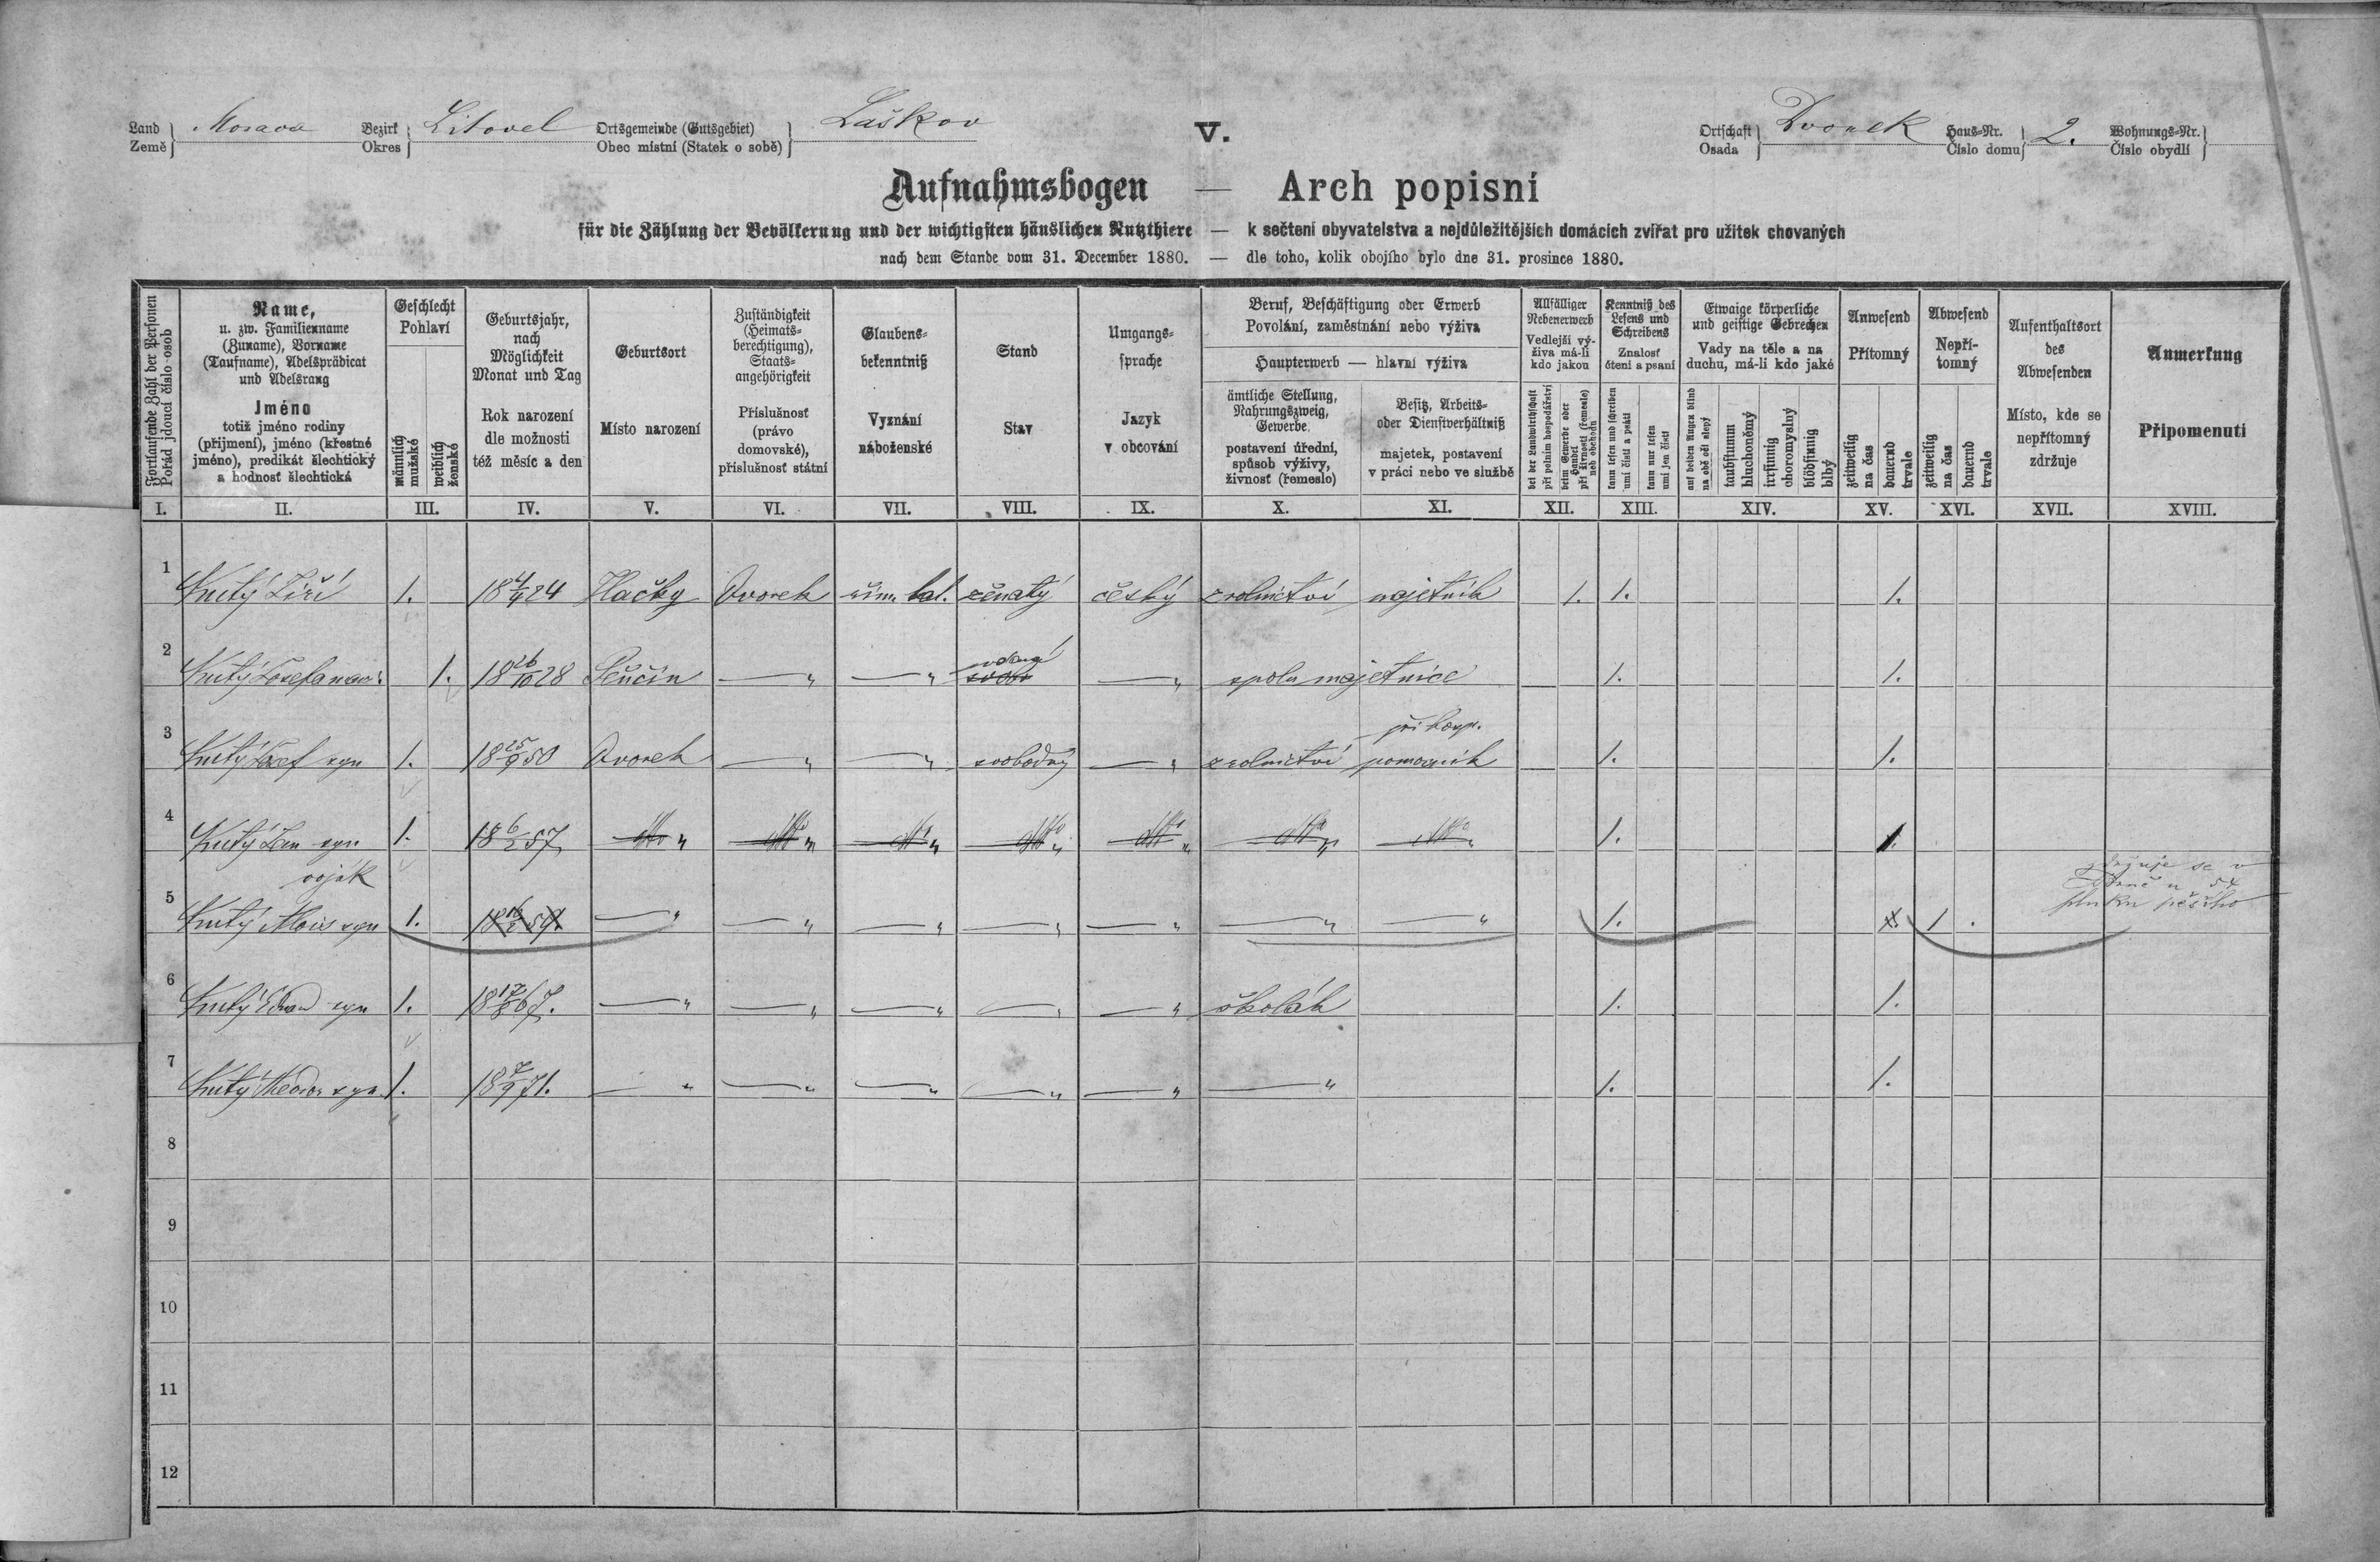 Land Země } Morava Bezirk Okres } Litovel Ortsgemeinde (Gutsgebiet) Obec místní (Statek o sobě) } Laškov
V.
Ortschaft Osada } Dvorek Haus-Nr. Číslo domu } 2. Wohnungs-Nr. Číslo obydlí }
Aufnahmsbogen — Arch popisní
für die Zählung der Bevölkerung und der wichtigsten häuslichen Nutzthiere — k sečtení obyvatelstva a nejdůležitějších domácích zvířat pro užitek chovaných
nach dem Stande vom 31. December 1880. — dle toho, kolik obojího bylo dne 31. prosince 1880.
Fortlaufende Zahl der Personen
Pořád jdoucí číslo osob
Name,
u. zw. Familienname
(Zuname), Vorname
(Taufname), Adelsprädicat
und Adelsrang
Jméno
totiž jméno rodiny
(přijmení), jméno (křestné
jméno), predikát šlechtický
a hodnost šlechtická
Geschlecht
Pohlaví
männlich
mužské
weiblich
ženské
Geburtsjahr,
nach
Möglichkeit
Monat und Tag
Rok narození
dle možnosti
též měsíc a den
Geburtsort
Místo narození
Zuständigkeit
(Heimats-
berechtigung),
Staats-
angehörigkeit
Příslušnosť
(právo
domovské),
příslušnosť státní
Glaubens-
bekenntniß
Vyznání
náboženské
Stand
Stav
Umgangs-
sprache
Jazyk
v obcování
Beruf, Beschäftigung oder Erwerb
Povolání, zaměstnání nebo výživa
Haupterwerb — hlavní výživa
ämtliche Stellung,
Nahrungszweig,
Gewerbe.
postavení úřední,
spůsob výživy,
živnosť (řemeslo)
Besitz, Arbeits-
oder Dienstverhältniß
majetek, postavení
v práci nebo ve službě
Allfälliger
Nebenerwerb
Vedlejší vý-
živa má-li
kdo jakou
bei der Landwirthschaft
při polním hospodářství
beim Gewerbe oder
Handel
při živnosti (řemesle)
neb obchodu
Kenntniß des
Lesens und
Schreibens
Znalosť
čtení a psaní
kann lesen und schreiben
umí čísti a psáti
kann nur lesen
umí jen čísti
Etwaige körperliche
und geistige Gebrechen
Vady na těle a na
duchu, má-li kdo jaké
auf beiden Augen blind
na obě oči slepý
taubstumm
hluchoněmý
irrsinnig
choromyslný
blödsinnig
blbý
Anwesend
Přítomný
zeitweilig
na čas
dauernd
trvale
Abwesend
Nepří-
tomný
zeitweilig
na čas
dauernd
trvale
Aufenthaltsort
des
Abwesenden
Místo, kde se
nepřítomný
zdržuje
Anmerkung
Připomenutí
I. II. III. IV. V. VI. VII. VIII. IX. X. XI. XII. XIII. XIV. XV. XVI. XVII. XVIII.
1 Kutý Jiří 1. 18 4/4 24 Hačky Dvorek řím. kat. ženatý český z rolnictví majetník 1. 1. 1.
vdaná
2 Kutý Josefa 1. 18 26/10 28 Senčin — " — " — " spolu majetnice 1. 1.
při hosp.
3 Kutý Josef syn 1. 18 25/9 50 Dvorek — " — " svobodný — " z rolnictví pomocník 1. 1.
4 Kutý Jan syn 1. 18 6/2 57 " " " " " " " 1. 1.
voják
zdržuje se v
u 54
pluku pěšího
5 Kutý Alois syn 1. 18 16/2 59 — " — " — " — " — " — " — " 1. 1.
6 Kutý Eduard syn 1. 18 12/8 67. — " — " — " — " — " školák 1. 1.
7 Kutý Theodor syn 1. 18 7/9 71. — " — " — " — " — " — " 1. 1.
8
9
10
11
12